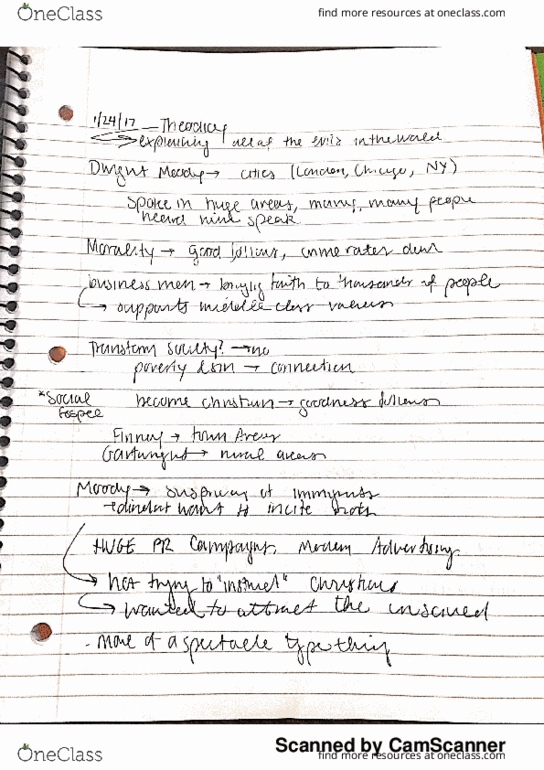 OneClass
find more resources at oneclass.com
1/24/17 - Theodicy
explaining all of the evils in the world
Dwight Moody → cities (London, Chicago, NY)
Spoke in huge areas, many, many people
heard him speak
Morality → good follows, crime rates down
business men → bringing faith to thousands of people
→ supports middle class values
Transform Society? → no
poverty &sin → connection
*Social
Gospel
become christian → goodness follows
Finney → town Areas
Cartwright → rural areas
Moody → of immigrants
→ didn't want to incite riots
HUGE PR Campaigns, Modern Advertising
→ not trying to "instruct" Christians
→ wanted to attract the unsaved
- more of a spectacle type thing
Scanned by CamScanner
OneClass
find more resources at oneclass.com